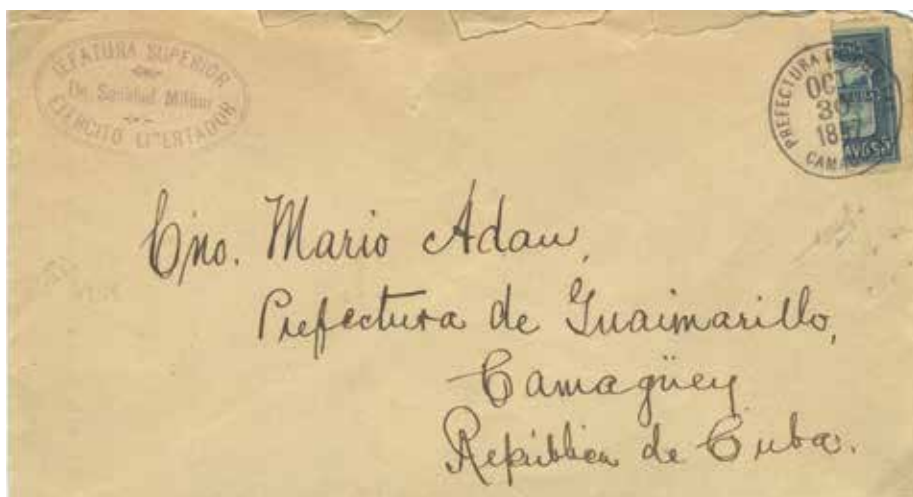 JEFATURA SUPERIOR
De Sanidad Militar
EJERCITO LIBERTADOR
PREFECTURA
OCT
30
1897
CAMAG
AVOS 5
Cno. Mario Adan,
Prefectura de Guaimarillo,
Camagüey
República de Cuba.